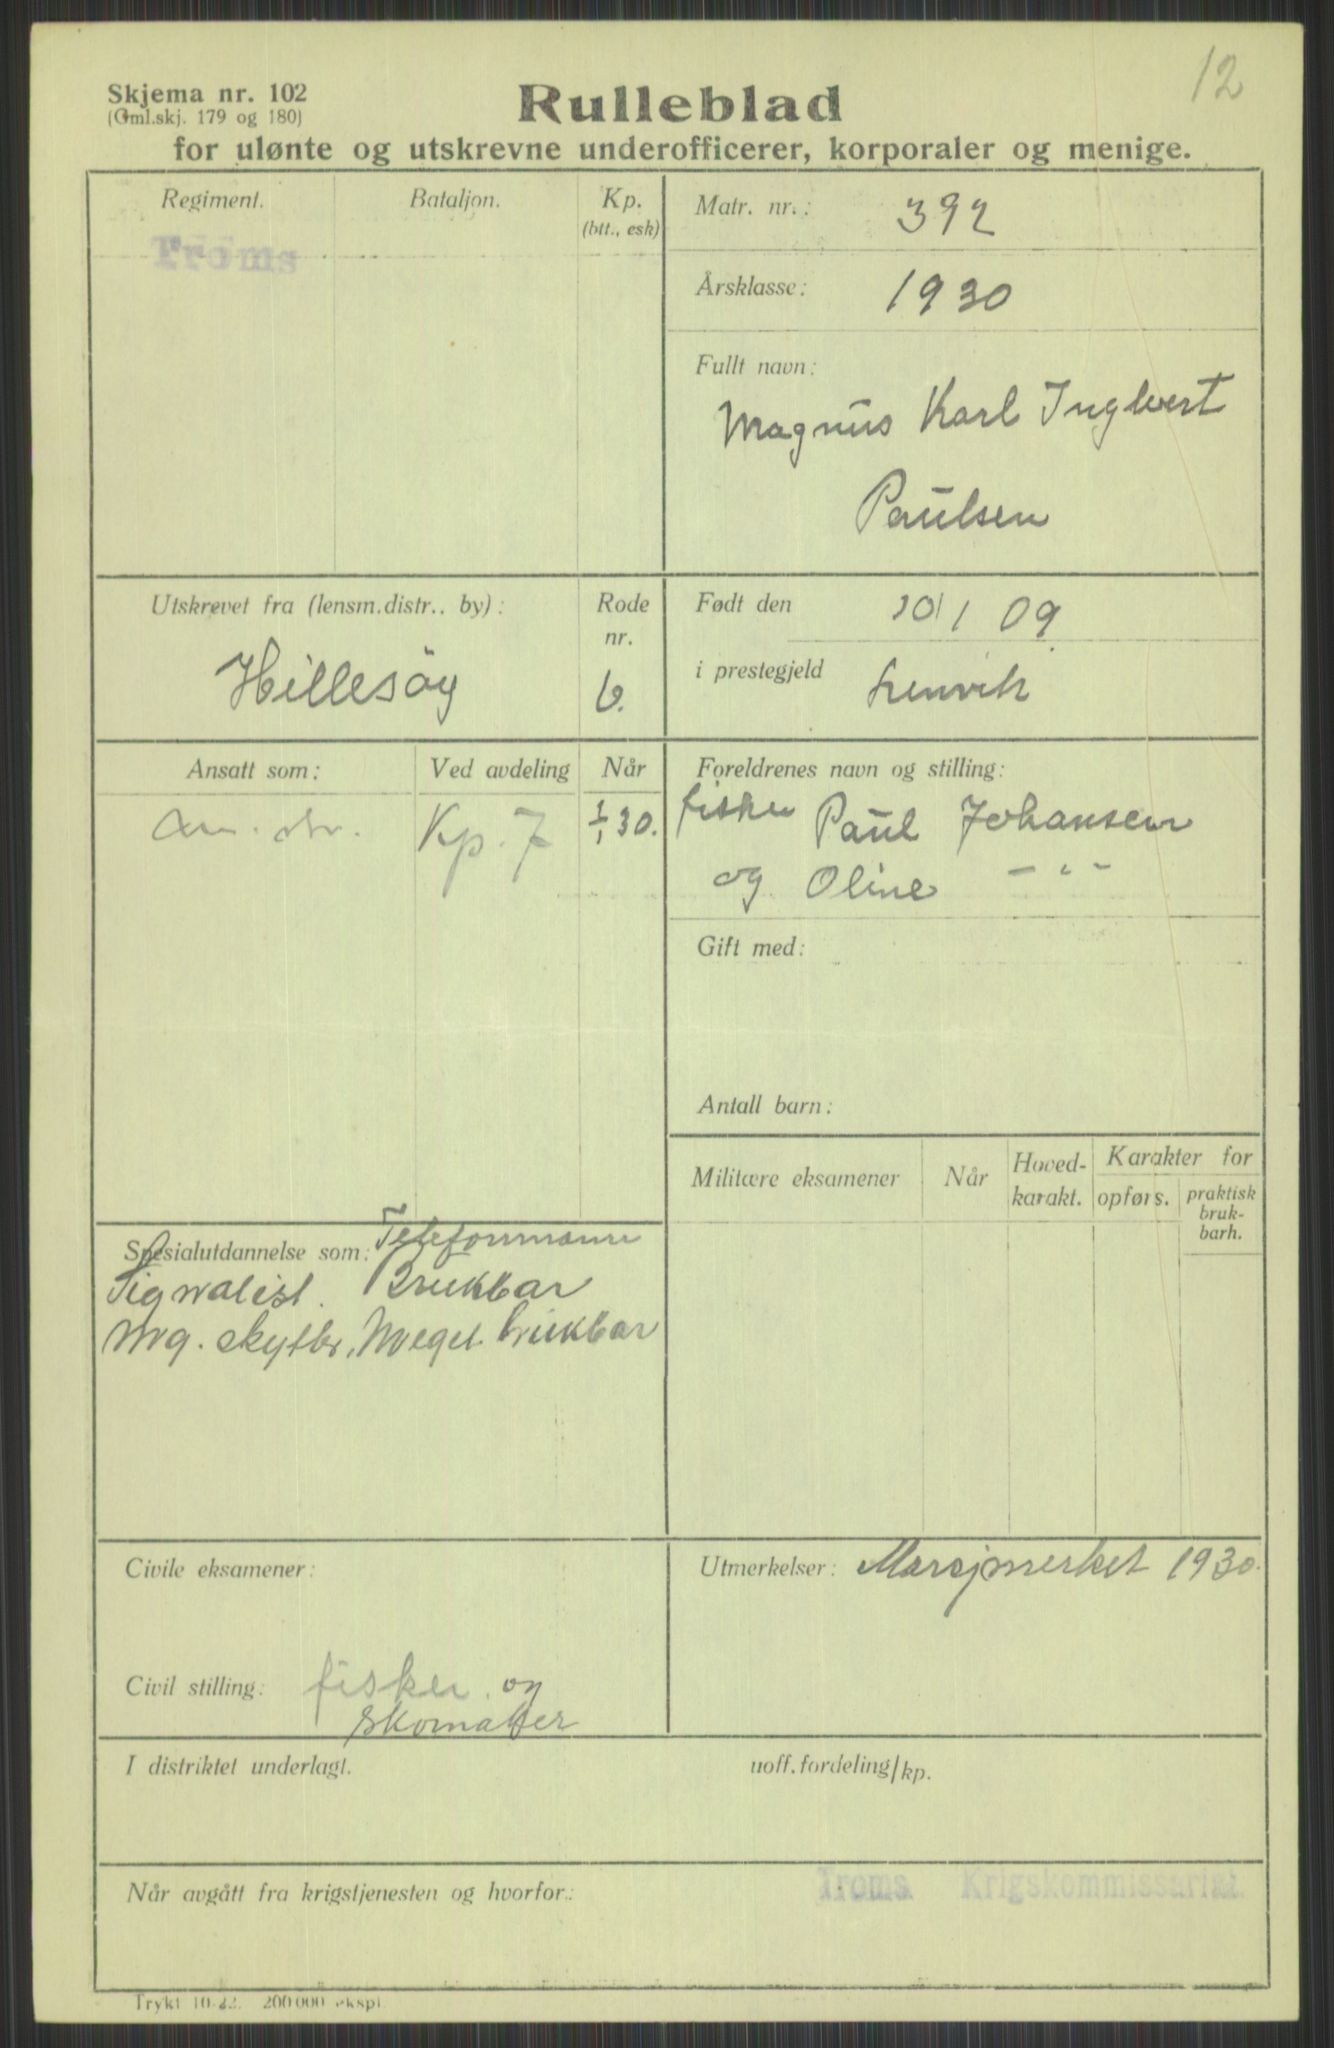 12
Skjema nr. 102
(Gml.skj. 179 og 180)
Rulleblad
for ulønte og utskrevne underofficerer, korporaler og menige.
Regiment.
Bataljon.
Kp.
(btt., esk)
Troms
Matr. nr.: 392
Årsklasse: 1930
Fullt navn:
Magnus Karl Ingbert
Paulsen
Utskrevet fra (lensm.distr.. by):
Hillesøy
Rode
nr.
6.
Født den 10/1 09.
i prestegjeld Lenvik
Ansatt som:
Ved avdeling
Når
Kp. 7
1/1 30.
Foreldrenes navn og stilling:
fisker Paul Johansen
og Oline - " -
Gift med:
Antall barn:
Militære eksamener
Når
Hoved-
karakt.
Karakter for
opførs.
praktisk
bruk-
barh.
Spesialutdannelse som: Telefonmann
Signalist. Brukbar
Mg. skytter, Meget brukbar
Civile eksamener:
Civil stilling: fisker og
skomaker
Utmerkelser: Marsjmerket 1930.
I distriktet underlagt.
uoff.fordeling/kp.
Når avgått fra krigstjenesten og hvorfor:
Troms Krigskommissariat.
Trykt 10-22. 200 000 ekspl